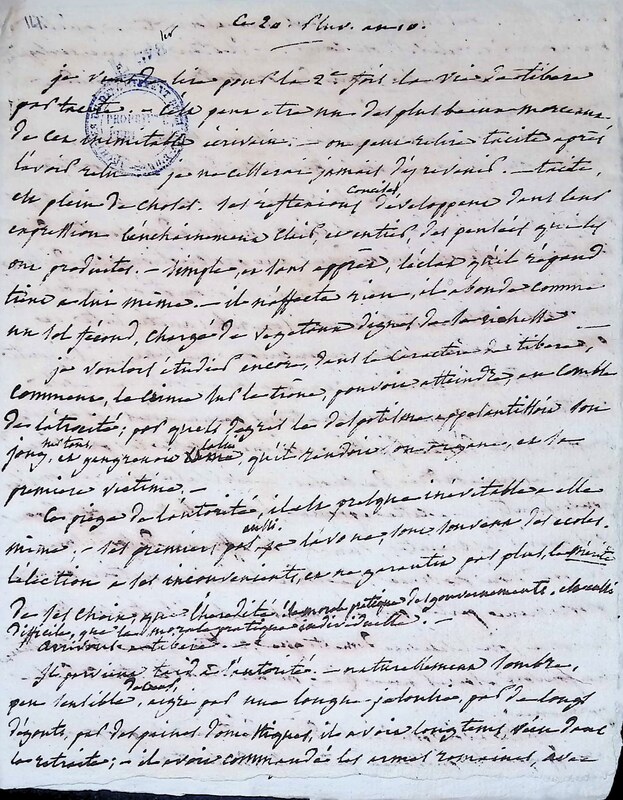 Ce 20. Pluv. an 10.
je viens de lire pour la 2e fois la vie de tibere
par tacite. — c'est peut etre un des plus beaux morceaux
de cet inimitable écrivain. — on peut relire tacite après
l'avoir relu je ne cesserai jamais d'y revenir. — tacite,
est plein de choses. ses réflexions concises, développent dans leur
expression l'enchainement clair, et entier, des pensées qui les
ont produites. — simple, et sans apprêt, l'éclat qu'il répand
tient a lui même. — il n'affecte rien, il abonde comme
un sol fécond, chargé de vegetaux dignes de sa richesse. —
je voulois étudier encore, dans le caractère de tibere,
comment, le crime sur le trône, pouvoit atteindre, au comble
de l'atrocité; par quels degrés le despotisme appesantissoit son
joug, et gangrenoit celui qu'il rendoit son organe, et sa
première victime. —
Ce piège de l'autorité, il est presque inévitable a elle
même. — ses premiers pas aussi, sont souvent des écoles.
l'élection a ses inconvenients, et ne garantit pas plus, le mérite
de ses choix, que l'hérédité. la morale pratique des gouvernements, est aussi
difficile, que la morale pratique individuelle. —
arrivons a tibere. —
Il parvint tard a l'autorité. — naturellement sombre,
peu sensible, aigri par une longue jalousie, par de longs
dégouts, par des peines domestiques, il avoit longtems vécu dans
la retraite; — il avoit commandé les armes romaines, avec